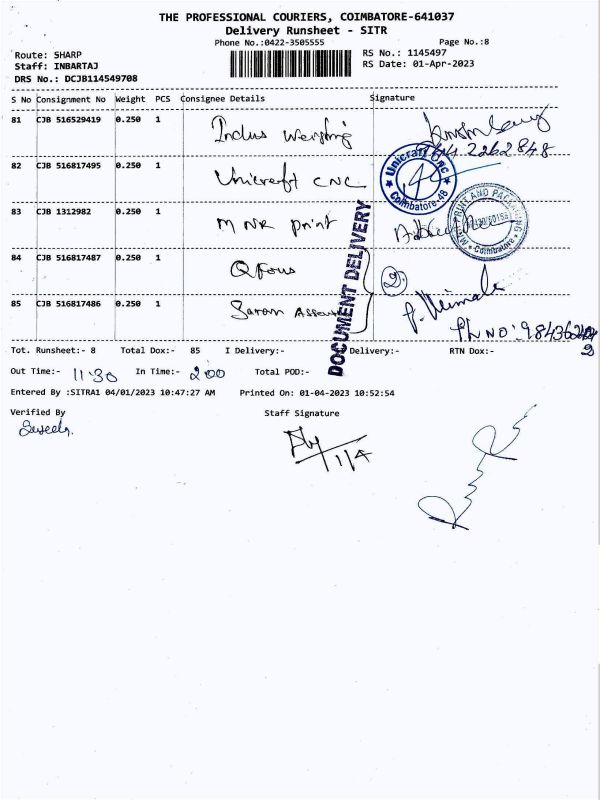 THE PROFESSIONAL COURIERS, COIMBATORE-641037
Delivery Runsheet - SITR
Phone No.:0422-3505555 Page No.:8
Route: SHARP RS No.: 1145497
Staff: INBARTAJ RS Date: 01-Apr-2023
DRS No.: DCJB114549708
S No Consignment No Weight PCS Consignee Details Signature
81 CJB 516529419 0.250 1 Indus Weighing
2262848
82 CJB 516817495 0.250 1 Unicraft CNC
Unicraft CNC
Coimbatore-48
83 CJB 1312982 0.250 1 MNR print
PRINT AND PACKAGING
Coimbatore
84 CJB 516817487 0.250 1 QFous
2
85 CJB 516817486 0.250 1 Saron
P. Nirmala
Ph NO:
DOCUMENT DELIVERY
Tot. Runsheet:- 8 Total Dox:- 85 I Delivery:- Delivery:- RTN Dox:-
Out Time:- 11:30 In Time:- 2:00 Total POD:-
Entered By :SITRA1 04/01/2023 10:47:27 AM Printed On: 01-04-2023 10:52:54
Verified By Staff Signature
1/4